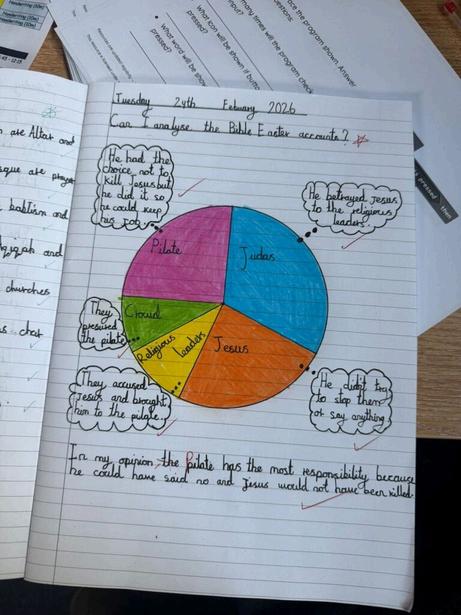 ace the program shown. Answer
questions:
many times will the program check
input?
What icon will be shown if button
What word will be show
pressed?
Handwriting (30m)
Handwriting (30m)
are Altar and
que are prayer
babtism and
and
churches
Tuesday 24th Febuary 2026
Can I analyse the Bible Easter accounts?
He had the
choice not to
kill Jesus but
he did it so
he could keep
his job.
He betrayed Jesus
to the religious
leaders.
Pilate
Judas
They
presured
the pilate
Crowd
Religious
leaders
Jesus
They accused
Jesus and brought
him to the pilate.
He didn't try
to stop them
or say anything.
In my opinion, the pilate has the most responsibility because
he could have said no and Jesus would not have been killed.